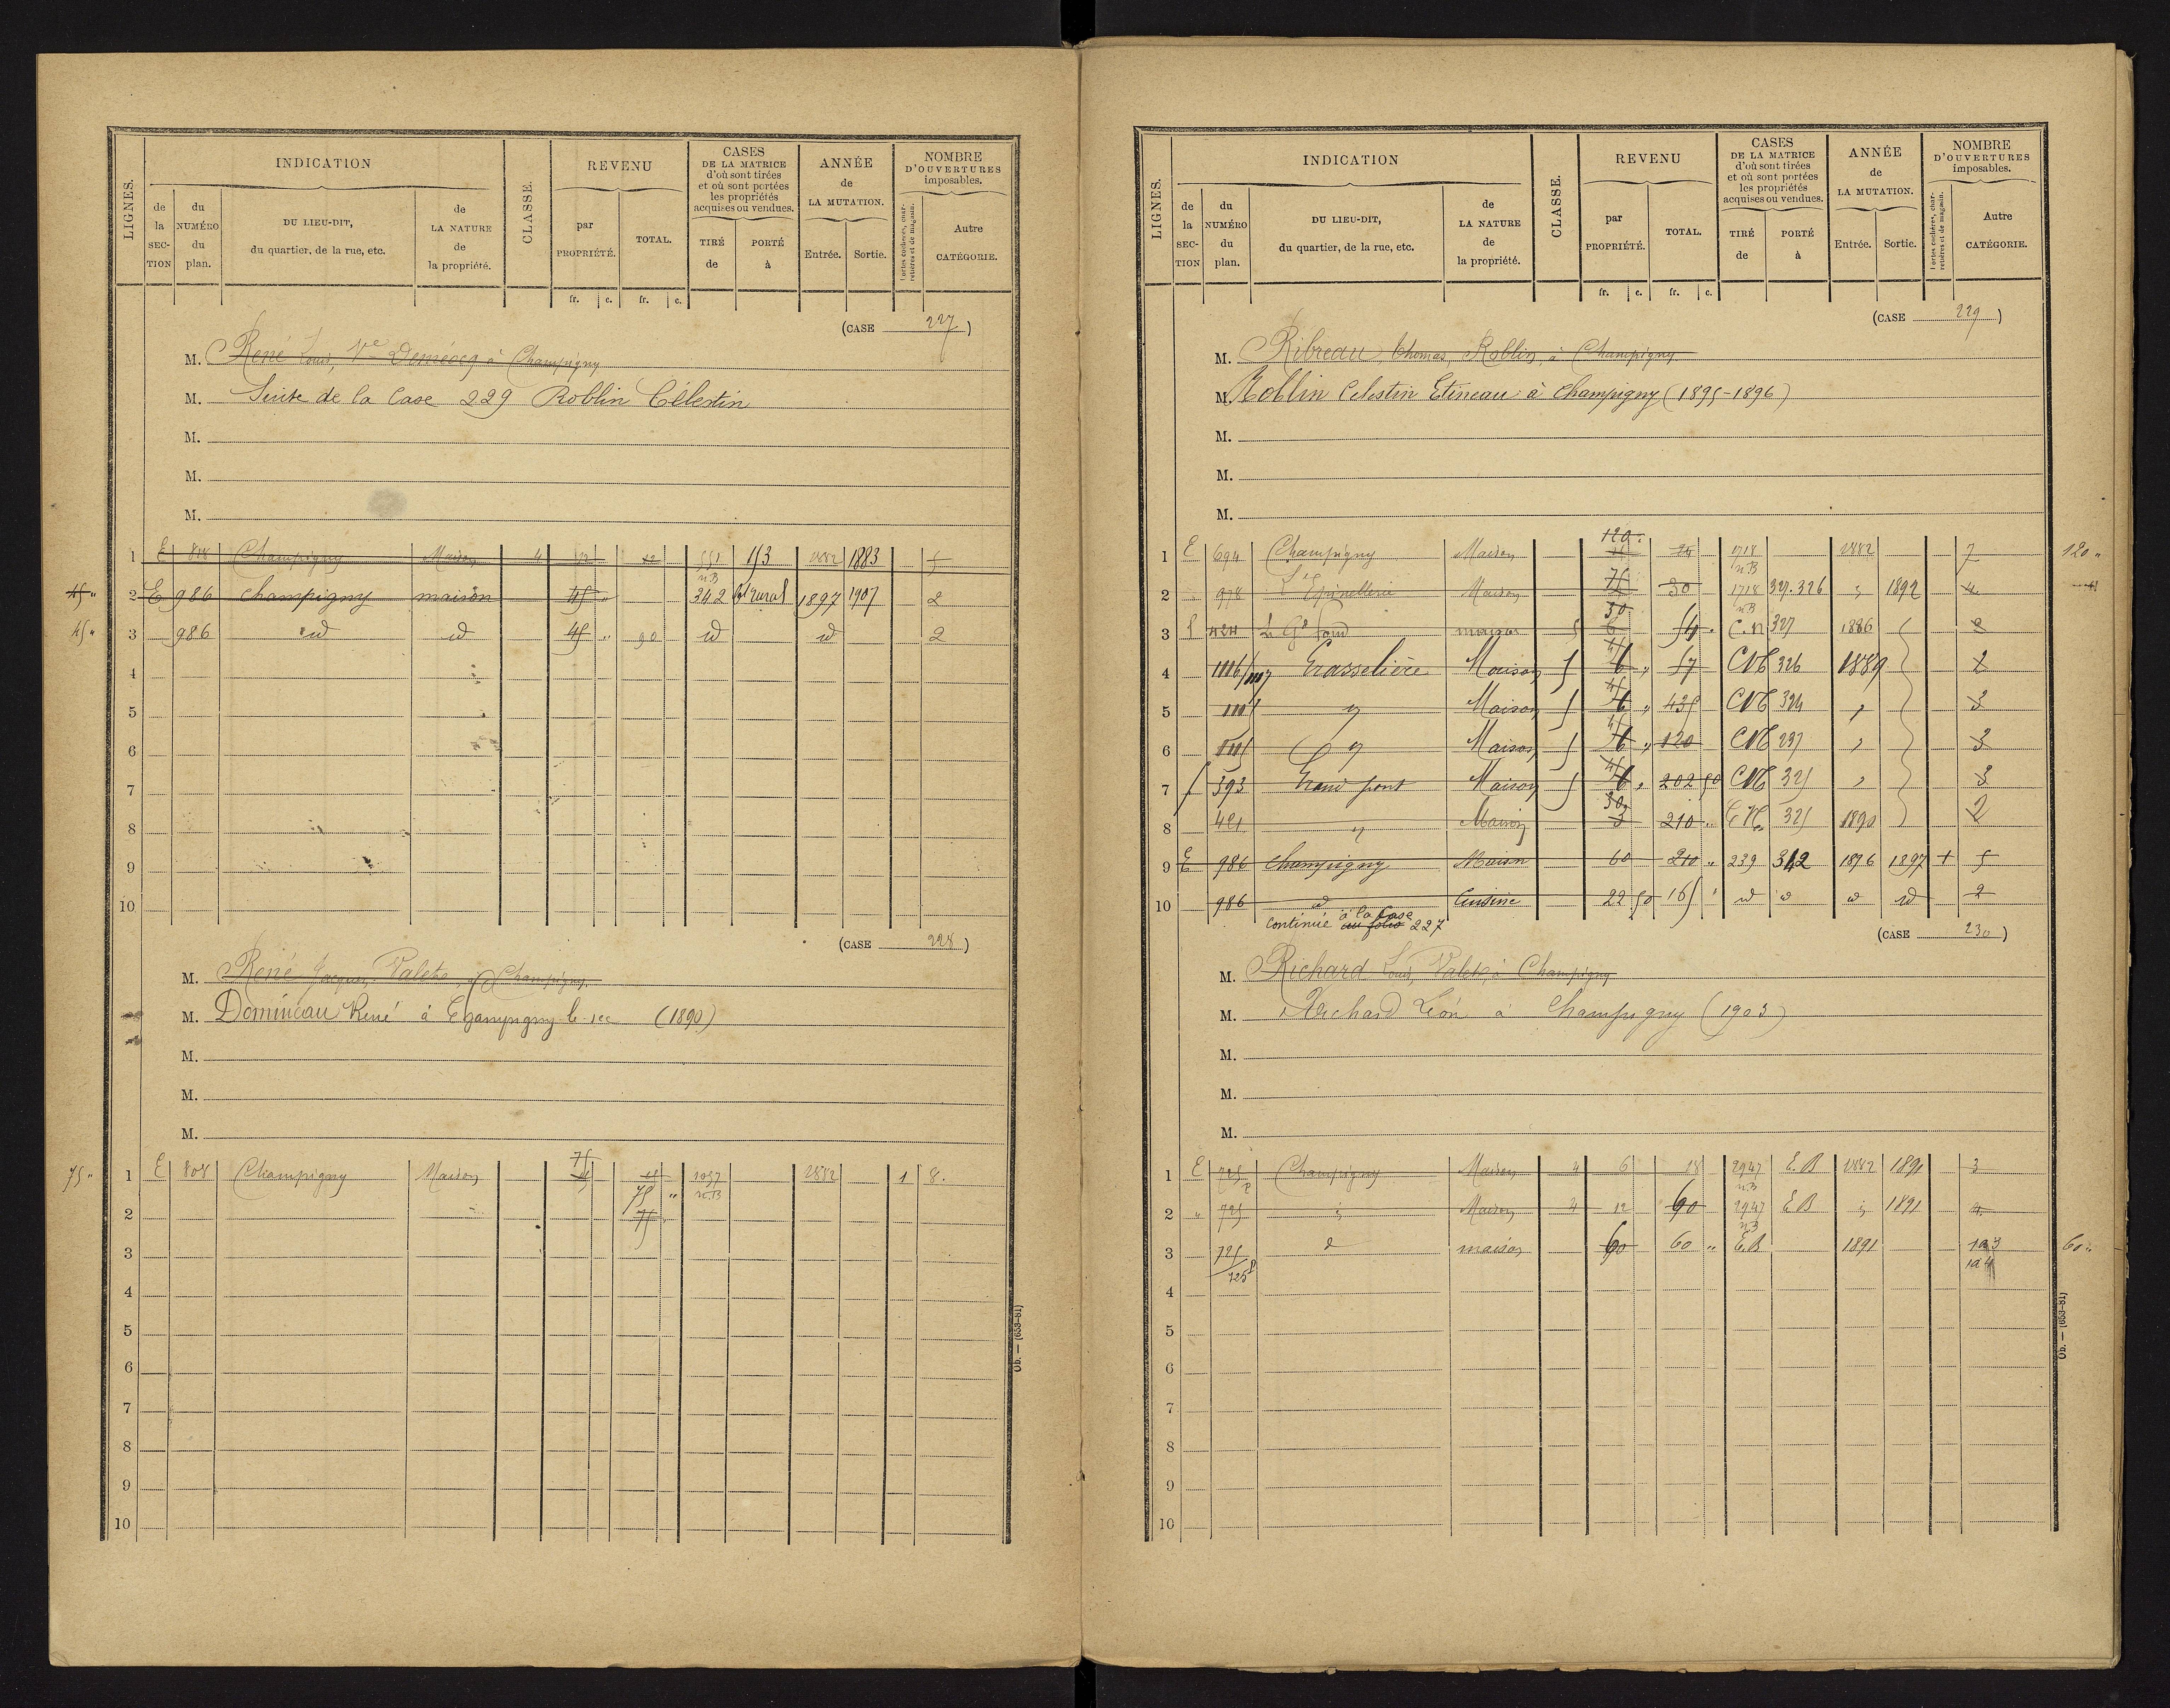 LIGNES. INDICATION CLASSE. REVENU CASES DE LA MATRICE d'où sont tirées et où sont portées les propriétés acquises ou vendues. ANNÉE de LA MUTATION. NOMBRE D'OUVERTURES imposables.
de la SECTION du NUMÉRO du plan. DU LIEU-DIT, du quartier, de la rue, etc. de LA NATURE de la propriété. par PROPRIÉTÉ. TOTAL. TIRÉ de PORTÉ à Entrée. Sortie. Portes cochères, charretières et de magasin. Autre CATÉGORIE.
fr. c. fr. c.
(CASE 227)
M. René Louis, Ve à Champigny
M. Suite de la Case 229 Roblin Célestin
M.
M.
M.
1 E 818 Champigny Maison 4 12 12 551 n.B 153 1882 1883 5
45 " 2 E 986 champigny maison 45 " 342 bt rural 1897 1907 2
45 " 3 986 id id 45 " 90 id id 2
4
5
6
7
8
9
10
(CASE 228)
M. René Jacques, Valets, à Champigny
M. Domineau René à Champigny-le-sec (1890)
M.
M.
M.
75
75 " 1 E 808 Champigny Maison 1037 n.B 1882 1 8.
75 "
2 75
3
4
5
6
7
8
9
10
Ob. — (653-81)
LIGNES. INDICATION CLASSE. REVENU CASES DE LA MATRICE d'où sont tirées et où sont portées les propriétés acquises ou vendues. ANNÉE de LA MUTATION. NOMBRE D'OUVERTURES imposables.
de la SECTION du NUMÉRO du plan. DU LIEU-DIT, du quartier, de la rue, etc. de LA NATURE de la propriété. par PROPRIÉTÉ. TOTAL. TIRÉ de PORTÉ à Entrée. Sortie. Portes cochères, charretières et de magasin. Autre CATÉGORIE.
fr. c. fr. c.
(CASE 229)
M. Ribreau Thomas, Roblin, à Champigny
M. Roblin Celestin Etineau à Champigny (1895-1896)
M.
M.
M.
120.
1 E 694 Champigny Maison 24 1718 n.B 1882 7 120 "
75
2 " 978 L'Epinellerie Maison 30 1718 n.B 327.326 " 1892 4
30
3 424 Le Gd fond maison 5 6 54 C.N 327 1886 2
45
4 1116/1117 Grasselière Maison 5 6 " 57 CN 326 1889 2
45
5 " Maison 5 6 " 435 CN 324 " 3
45
6 " Maison 5 6 " 120 CN 237 " 3
45
7 393 Grand pont Maison 5 6 " 202 50 CN 325 " 3
30
8 421 " Maison 3 210 " CN 325 1890 2
9 E 986 Champigny Maison 60 210 " 239 342 1896 1897 + 5
10 986 id Cuisine 22 50 165 " id id id id 2
continué à la Case au folio 227
(CASE 230)
M. Richard Louis, Valets, à Champigny
M. Richard Léon à Champigny (1903)
M.
M.
M.
1 E 725 p Champigny Maison 4 6 18 2947 n.B E.B 1882 1891 3
2 " 725 Maison 4 12 60 2947 n.B E.B 1891 4
3 725/725 p d maison 60 60 " E.B 1891 1 a 3 60 "
1 a 4
4
5
6
7
8
9
10
Ob. — (653-81)